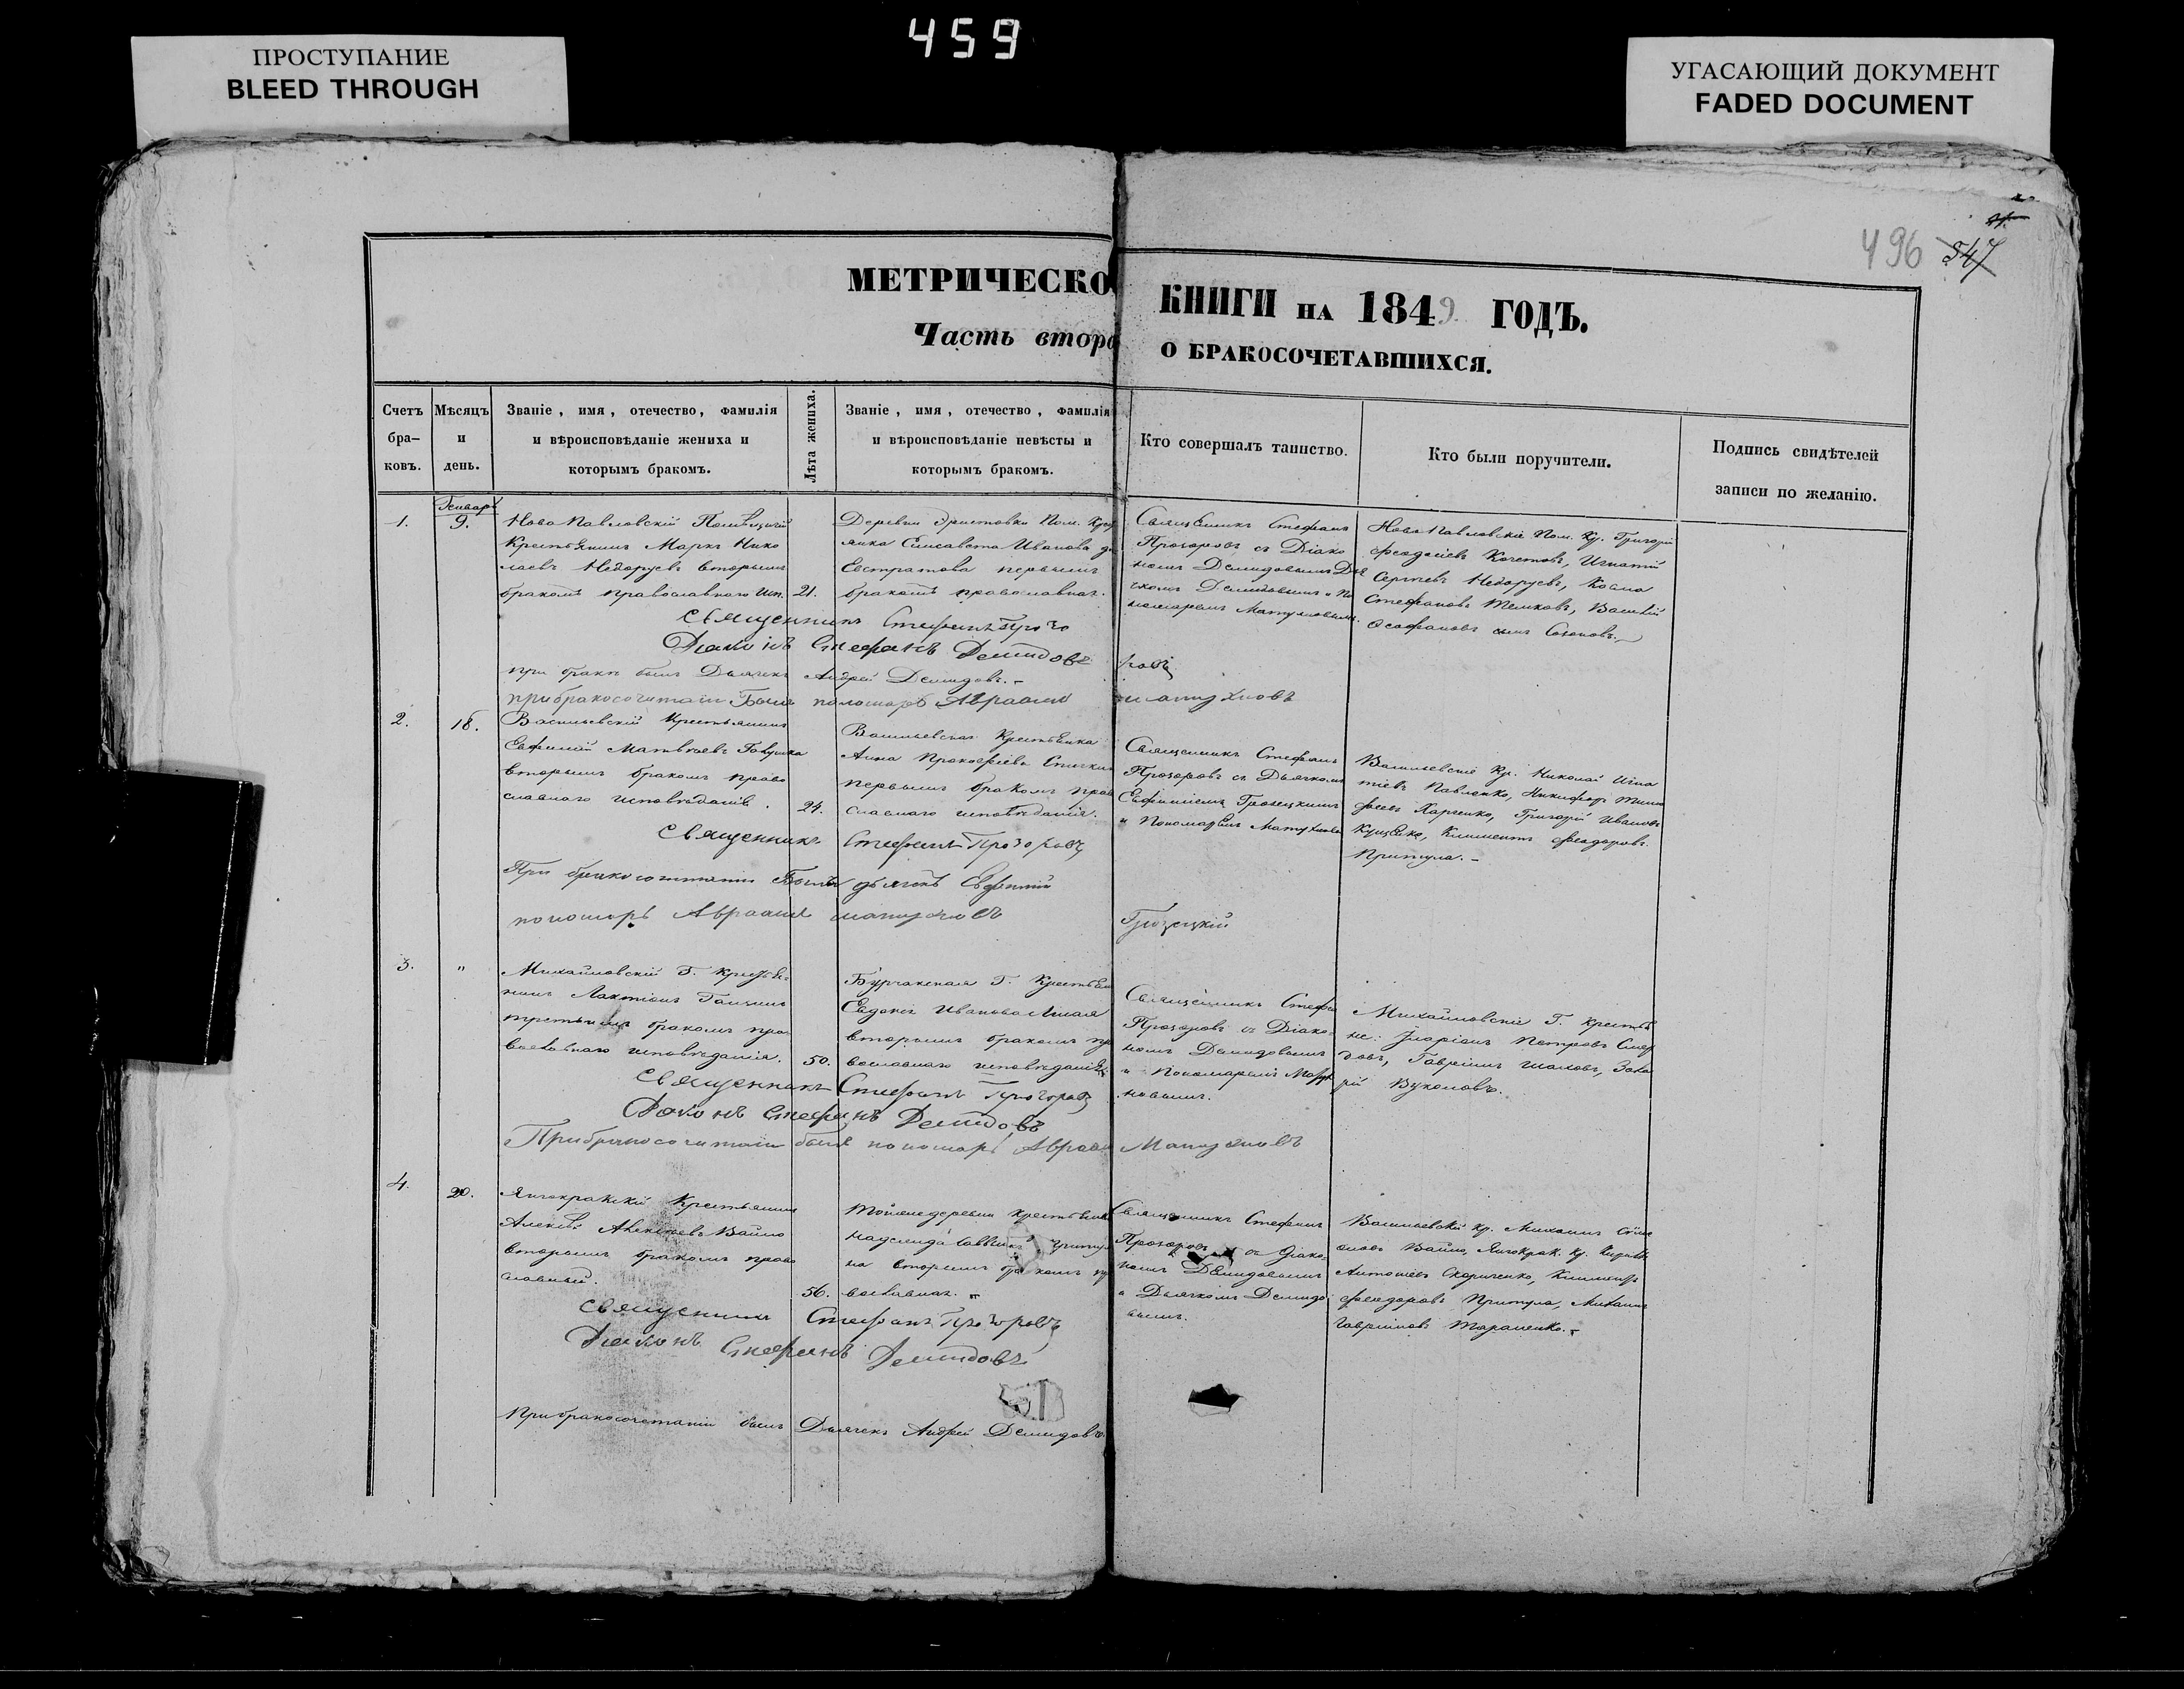 459
ПРОСТУПАНИЕ
BLEED THROUGH
УГАСАЮЩИЙ ДОКУМЕНТ
FADED DOCUMENT
496 547
МЕТРИЧЕСКО КНИГИ НА 1849. ГОДЪ.
Часть второ О БРАКОСОЧЕТАВШИХСЯ.
Счетъ бра-ковъ.
Мѣсяцъ и день.
Званіе, имя, отечество, фамилія
и вѣроисповѣданіе жениха и
которымъ бракомъ.
Лѣта жениха.
Званіе, имя, отечество, фамилія
и вѣроисповѣданіе невѣсты и
которымъ бракомъ.
Кто совершалъ таинство.
Кто были поручители.
Подпись свидѣтелей
записи по желанію.
1.
Генваря
9.
Ново Павловскій Помѣщичій
Крестьянинъ Маркъ Нико
лаевъ Недоруевъ вторымъ
бракомъ православнаго исп.
21.
Деревни Пом.
Елисавета Иванова
Евстратова первымъ
бракомъ православнаг.
Священникъ Стефанъ
Прозоровъ съ Діако
номъ Демидовымъ
Демидовымъ и По
номаремъ
Ново Павловскіе Пом. Кр. Григорій
Феодосіевъ Кочетовъ, Игнатій
Сергѣевъ Недоруевъ, Косма
Стефановъ Василій
Священникъ Стефанъ Прозо ровъ
Діаконъ Стефанъ Демидовъ
при бракѣ былъ Дьячекъ Андрей Демидовъ.
при бракосочитаніи былъ пономарь Авраамъ
2.
18.
Васильевскій Крестьянинъ
Евфимій Матвѣевъ
вторымъ бракомъ право
славнаго исповѣданія.
24.
Васильевская Крестьянка
Анна Прокофіева
первымъ бракомъ прав
славнаго исповѣданія.
Священникъ Стефанъ
Прозоровъ съ Дьячкомъ
Евфиміемъ
и Пономаремъ
Васильевскіе Кр. Николай Игна
тіевъ Павленко, Никифоръ Тимо
феевъ Харченко, Григорій Ивановъ
Климентъ Феодоровъ
Притула.
Священникъ Стефанъ Прозоровъ
При бракосочитаніи былъ дьячекъ Евфимій
пономарь Авраамъ
3.
"
Михайловскій Г. Крестья-
нинъ
третьимъ бракомъ пра-
вославнаго исповѣданія.
50.
Г. Крестьян
Евдокія Иванова
вторымъ бракомъ пр
вославнаго исповѣданія
Священникъ Стефа
Прозоровъ съ Діако-
номъ Демидовымъ
и Пономаремъ
новымъ.
Михайловскіе Г. Крестья
не: Иларіонъ Петровъ
Гавріилъ Заха
рій Вуколовъ.
Священникъ Стефанъ Прозоровъ
Діаконъ Стефанъ Демидовъ
При бракосочитаніи былъ пономарь Авраам
4.
20.
Янчокракскій Крестьянинъ
Алексѣй Алексѣевъ Вайло
вторымъ бракомъ право
славный.
56.
Той же деревни крестьянка
на вторымъ бракомъ пр
вославнаг.
Священникъ Стефанъ
Прозоровъ съ Діако-
номъ Демидовымъ
и Дьячкомъ Демидо
вымъ.
Васильевскій кр. Михаилъ
Вайло, Янчокрак. кр.
Скориченко, Климентъ
Феодоровъ Притула, Михаилъ
Гавріиловъ Тараненко.
Священникъ Стефанъ Прозоровъ
Діаконъ Стефанъ Демидовъ
При бракосочетаніи былъ Дьячекъ Андрей Демидовъ